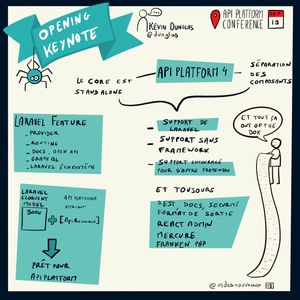 OPENING
KEYNOTE
KÉVIN DUNGLAS
@dunglas
API PLATFORM
CONFERENCE
SEP
19
API PLATFORM 4
LE CORE EST
STANDALONE
SÉPARATION
DES
COMPOSANTS
LARAVEL FEATURE
_ PROVIDER
_ ROUTING
_ DOCS, OPEN API
_ GRAPHQL
_ LARAVEL ÉCOSYSTÈME
- SUPPORT DE
LARAVEL
- SUPPORT SANS
FRAMEWORK
- SUPPORT ENCOURAGÉ
POUR D'AUTRE FRAMEWORK
ET TOUT ÇA
OUT OF THE
BOX
ET TOUJOURS
REST, DOCS, SÉCURITÉ
FORMAT DE SORTIE
REACT ADMIN
MERCURE
FRANKEN PHP
LARAVEL
ELOQUENT
MODEL
API PLATFORM
ATTRIBUT
BOOK
+
[ApiResource]
PRÊT POUR
API PLATFORM